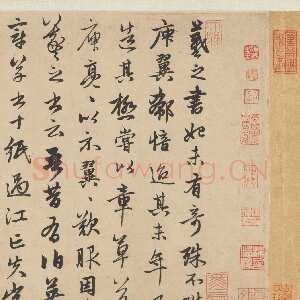 羲之書始未有奇殊不
庾翼郗愔迨其末年
造其極嘗以章草
庾亮〻以示翼〻歎服因
羲之書云吾昔有伯英
章草書十紙過江亡失
Shufawang.CN